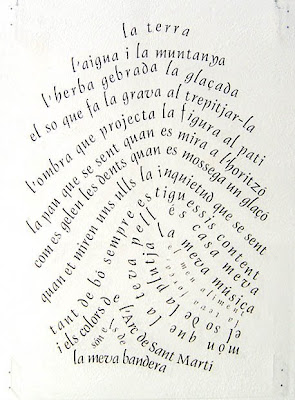 la terra
l'aigua i la muntanya
l'herba gebrada la glaçada
el so que fa la grava al trepitjar-la
l'ombra que projecta la figura al pati
la pau que se sent quan es mira a l'horitzó
com es gelen les dents quan es mossega un glaçó
quan et miren uns ulls la inquietud que se sent
tant de bó sempre estiguessis content
la teva pell és casa meva
el so de la pluja la meva música
el meu aliment
i els colors de
món que
són els de
l'Arc de Sant Martí
la meva bandera